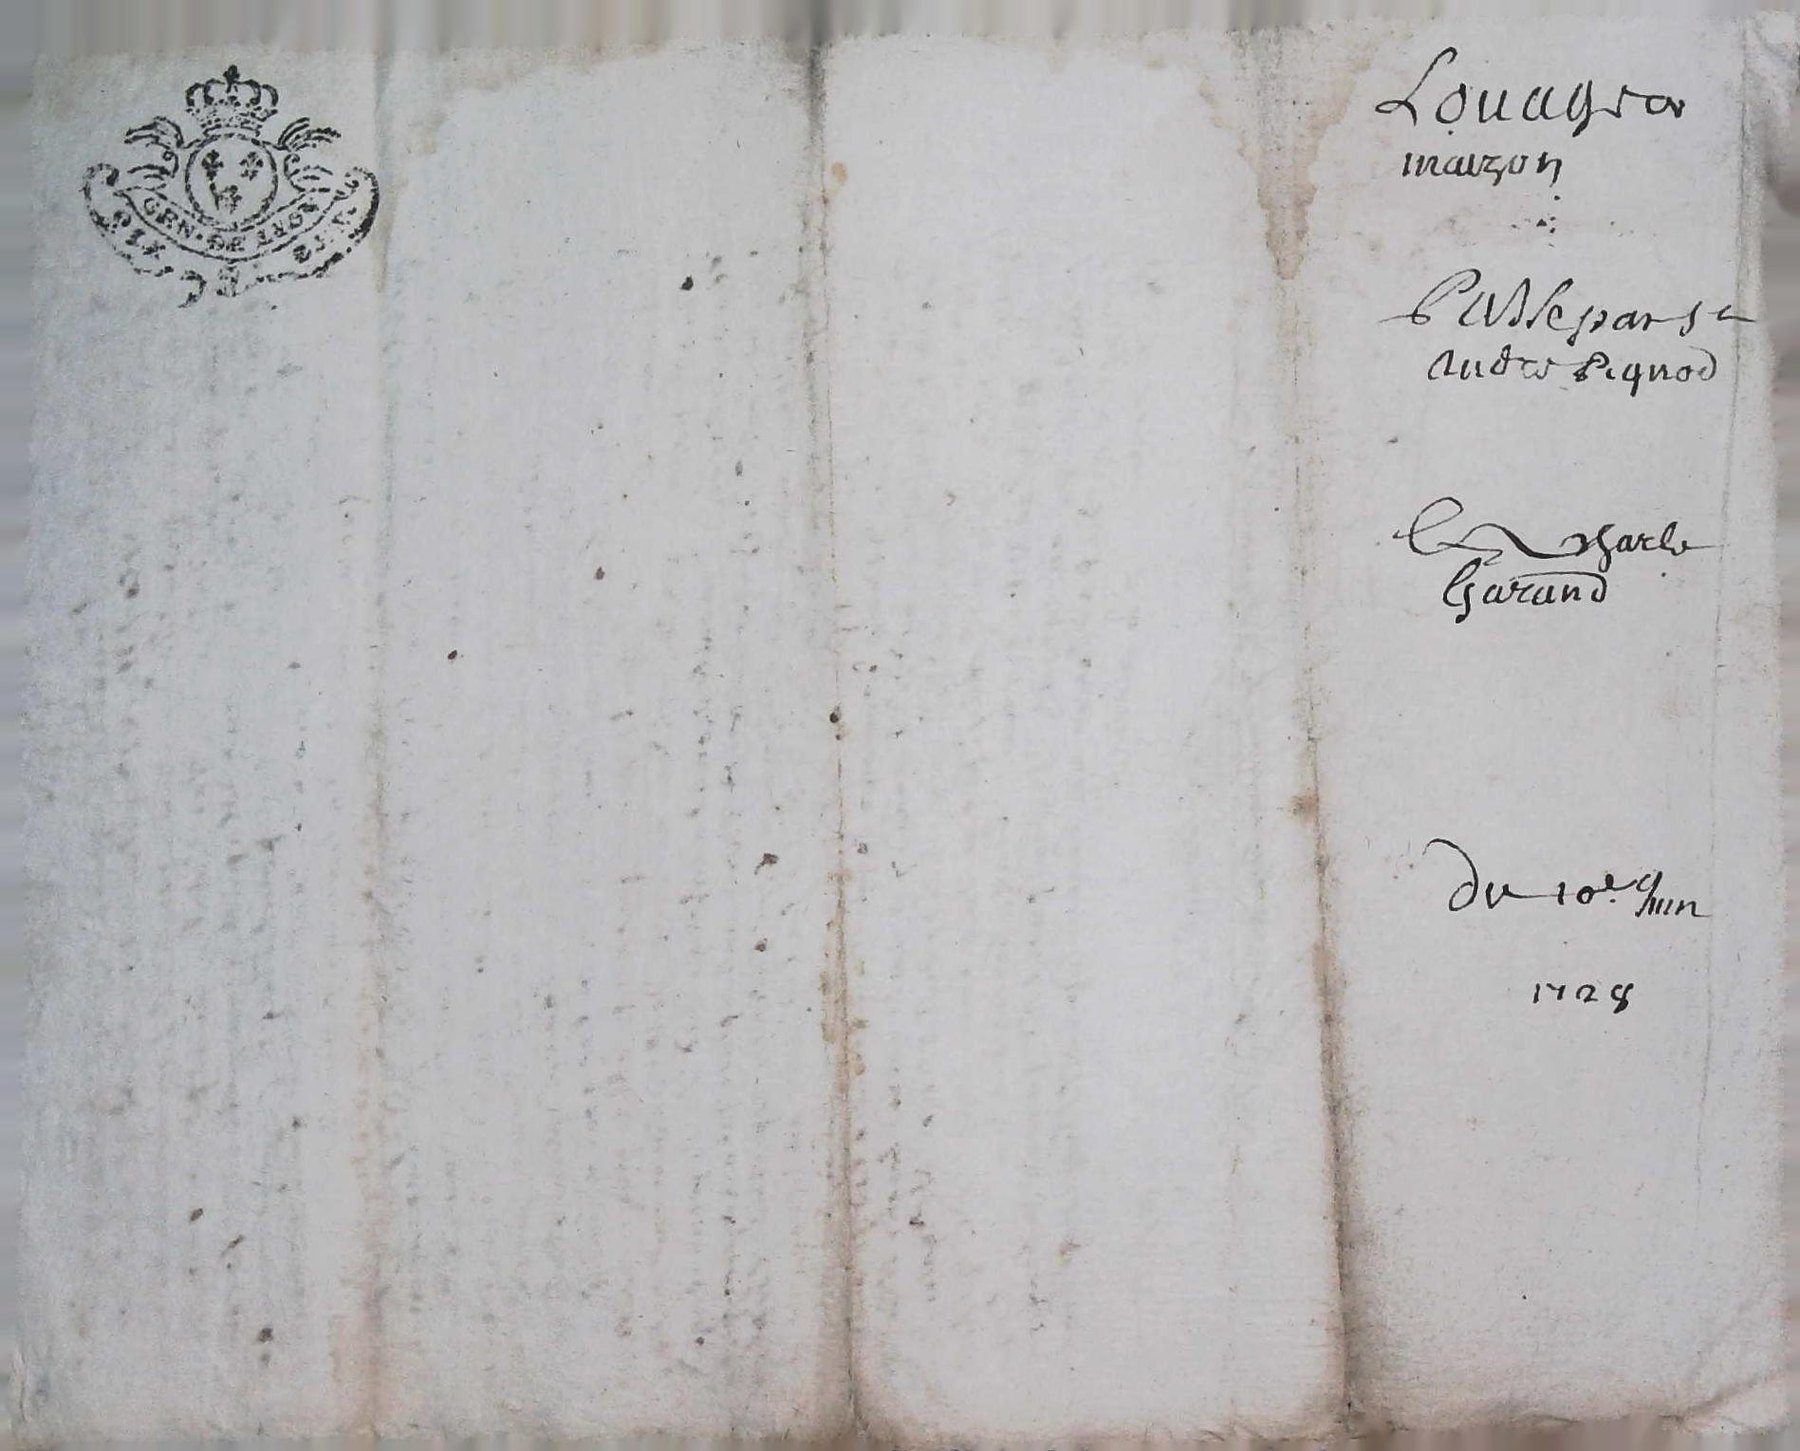 GEN. DE LYON
Louagea
maizon
Passe par sr
Andre Pignod
Et Charle
Garand
du 10e Juin
1728